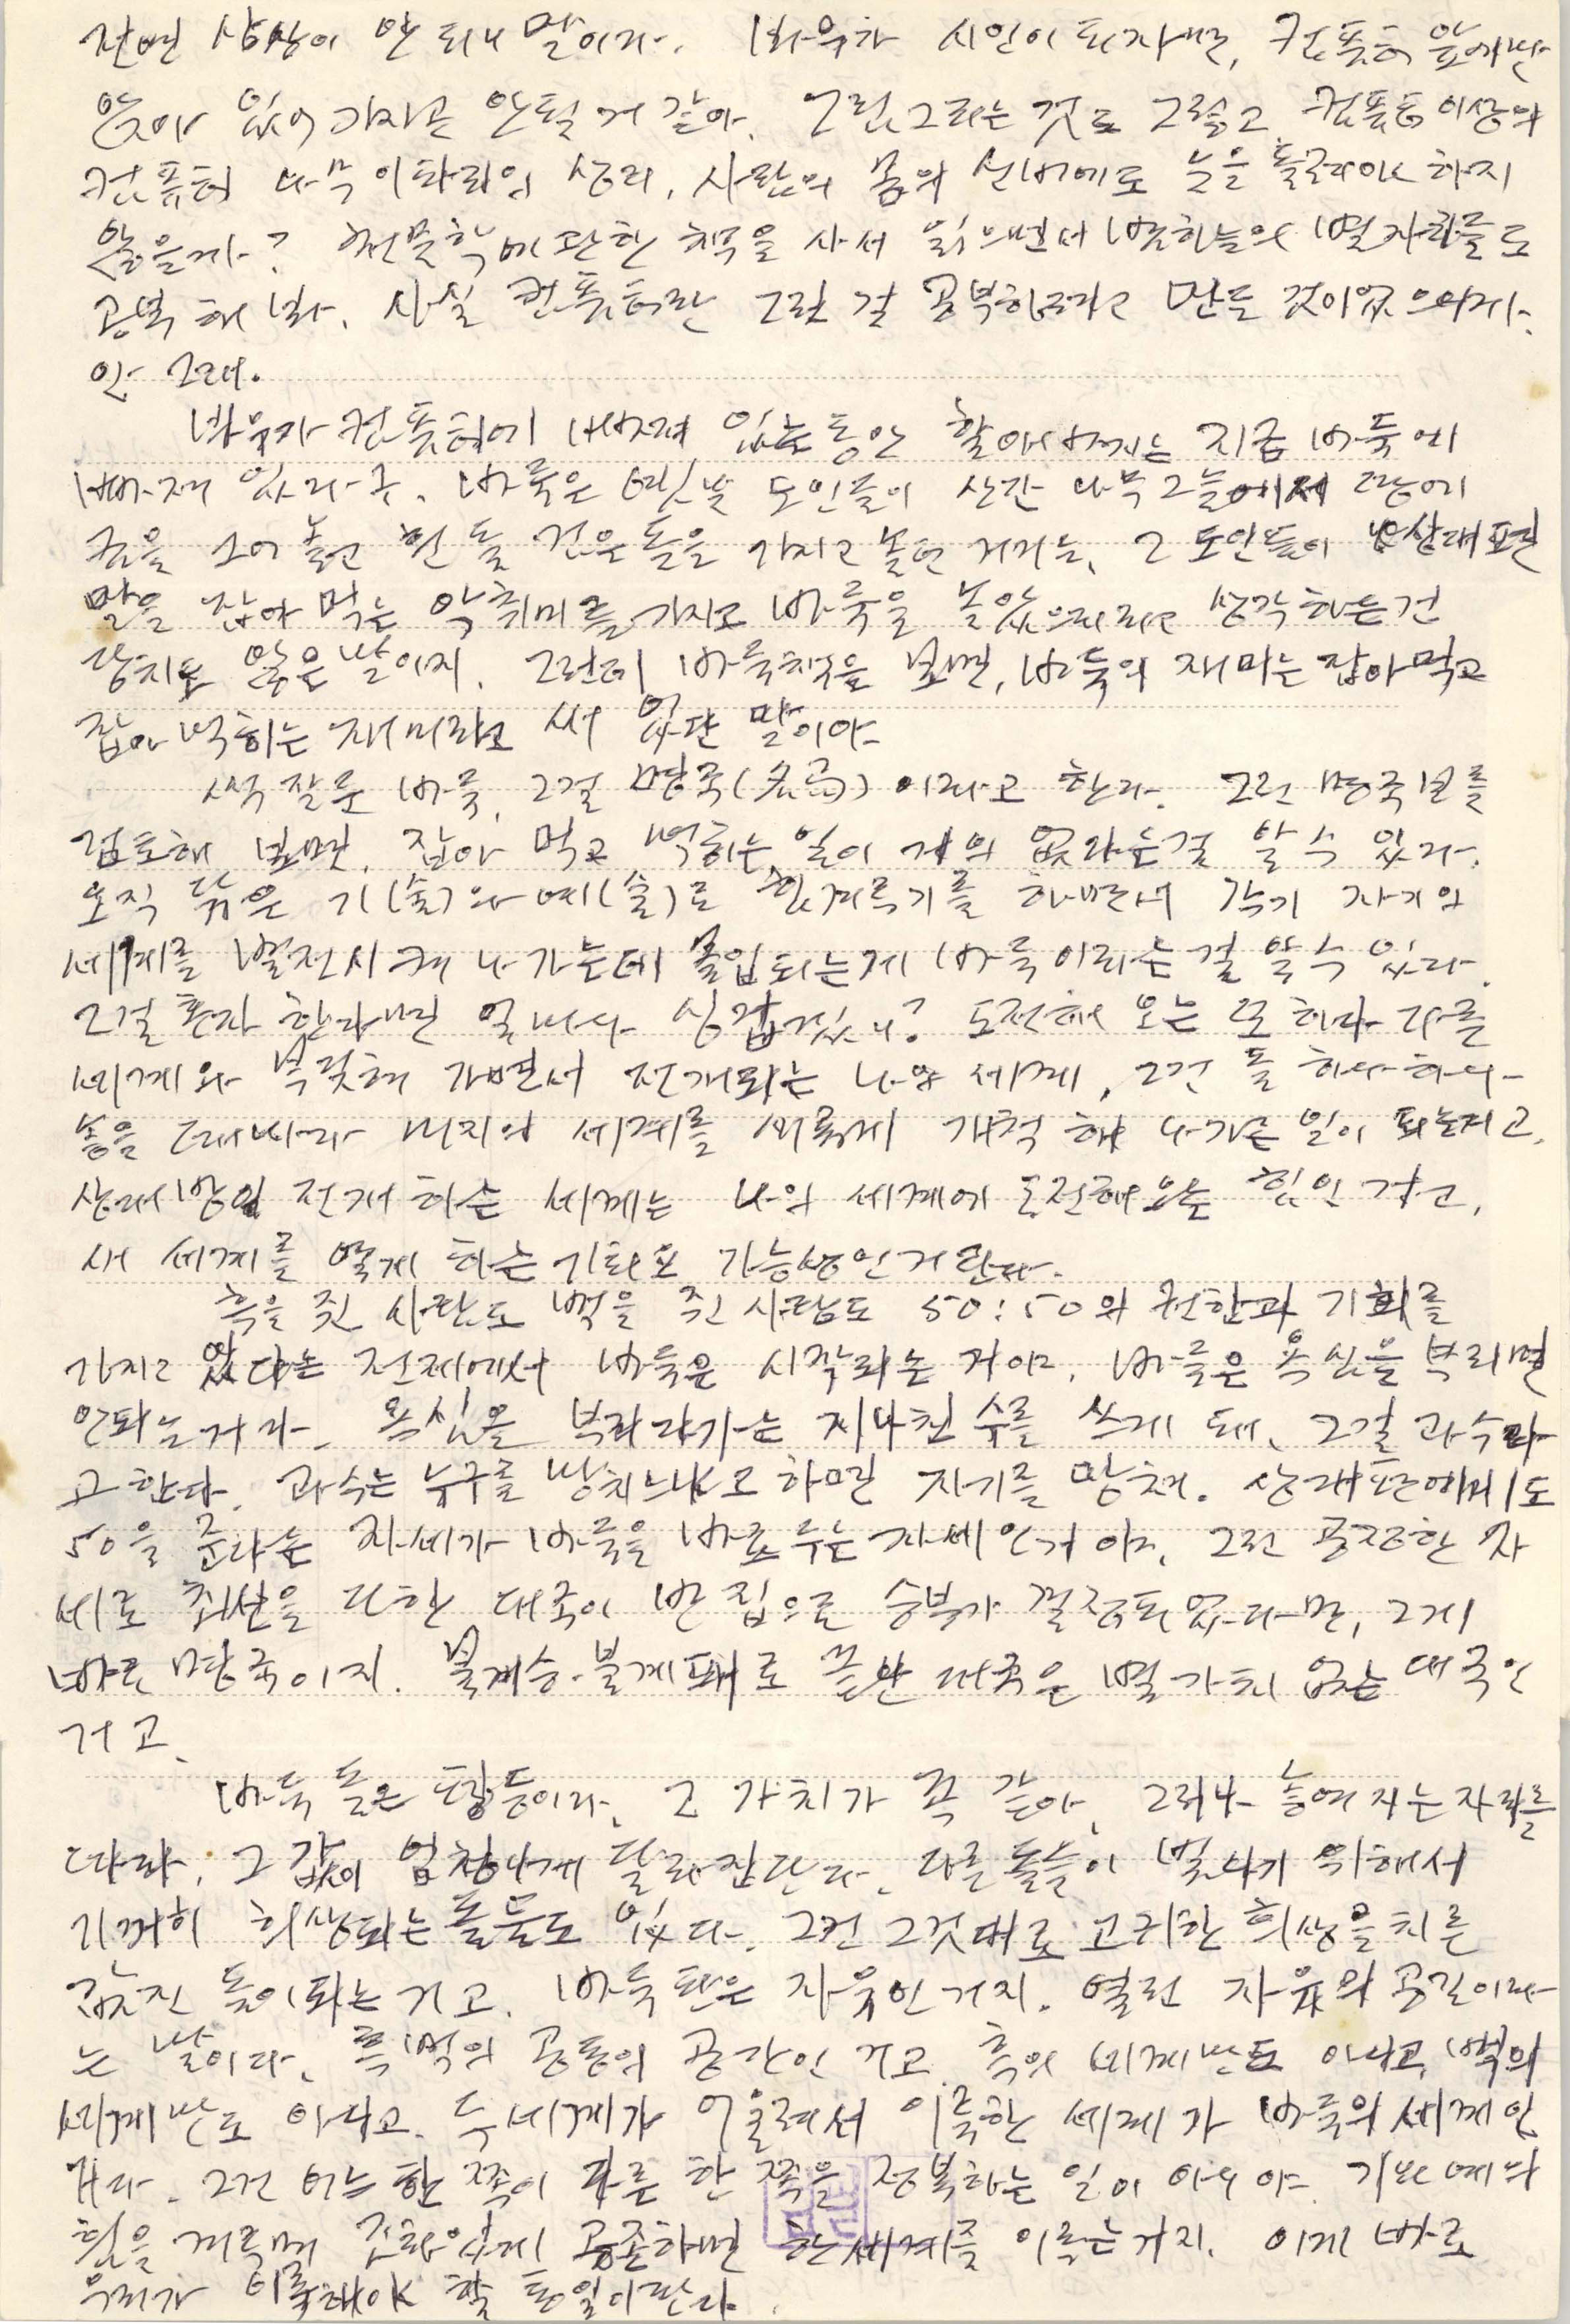 전연 상상이 안 되니 말이다. 바우가 시인이 되자면, 컴퓨터 앞에만
앉아 있어 가지곤 안될 거 같아. 그림 그리는 것도 그렇고. 컴퓨터 이상의
컴퓨터 나무 이파리의 생리, 사람의 몸의 신비에도 눈을 돌려야 하지
않을까? 천문학에 관한 책을 사서 읽으면서 밤하늘의 별자리들도
공부해 봐. 사실 컴퓨터란 그런 걸 공부하려고 만든 것이었으니까.
안 그래.
바우가 컴퓨터에 빠져 있는 동안 할아버지는 지금 바둑에
빠져 있다구. 바둑은 옛날 도인들이 산간 나무그늘에서 땅에
금을 그어 놓고 흰 돌 검은 돌을 가지고 놀던 거거든. 그 도인들이 상대편
말을 잡아 먹는 악취미를 가지고 바둑을 놓았으리라고 생각하는 건
당치도 않은 말이지. 그런데 바둑책을 보면, 바둑의 재미는 잡아먹고
잡아 먹히는 재미라고 써 있단 말이야.
썩 잘 둔 바둑, 그걸 명국(名局)이라고 한다. 그런 명국보를
검토해 보면, 잡아 먹고 먹히는 일이 거의 없다는 걸 알 수 있다.
오직 닦은 기(술)와 예(술)로 힘겨루기를 하면서 각기 자기의
세계를 발전시켜 나가는데 몰입되는 게 바둑이라는 걸 알 수 있다.
그걸 혼자 한다면 얼마나 싱겁겠니? 도전해 오는 또 하나 다를
세계와 부딪쳐 가면서 전개되는 나의 세계, 그건 돌 하나하나
놓을 때마다 미지의 세계를 새롭게 개척해 나가는 일이 되는 거고,
상대방이 전개하는 세계는 나의 세계에 도전해 오는 힘인 거고,
새 세계를 열게 하는 기회요 가능성인 거란다.
흑을 쥔 사람도 백을 쥔 사람도 50:50의 권한과 기회를
가지고 있다는 전제에서 바둑은 시작되는 거야. 바둑은 욕심을 부리면
안되는 거다. 욕심을 부리다가는 지나친 수를 쓰게 돼. 그걸 과수라
고 한다. 과수는 누구를 망치느냐고 하면 자기를 망쳐. 상대편에게도
50을 준다는 자세가 바둑을 바로 두는 자세인 거야. 그런 공정한 자
세로 최선을 다한 대국이 반 집으로 승부가 결정되었다면, 그게
바로 명국이지. 불계승·불계패로 끝난 대국은 별 가치 없는 대국인
거고.
바둑 돌은 평등이다. 그 가치가 꼭 같아. 그러나 놓여지는 자리를
따라, 그 값이 엄청나게 달라진단다. 다른 돌들이 빛나기 위해서
기꺼히 희생되는 돌들도 있다. 그건 그것대로 고귀한 희생을 치른
값진 돌이 되는 거고. 바둑판은 자유인 거지. 열린 자유의 공간이라
는 말이다. 흑백의 공동의 공간인 거고. 흑의 세계만도 아니고, 백의
세계만도 아니고. 두 세계가 어울려서 이룩한 세계가 바둑의 세계인
거다. 그건 어느 한 쪽이 다른 한 쪽을 정복하는 일이 아니야. 기와 예의
힘을 겨루며 조화있게 공존하면 한 세계를 이룩는 거지. 이게 바로
우리가 이룩해야 할 통일이란다.